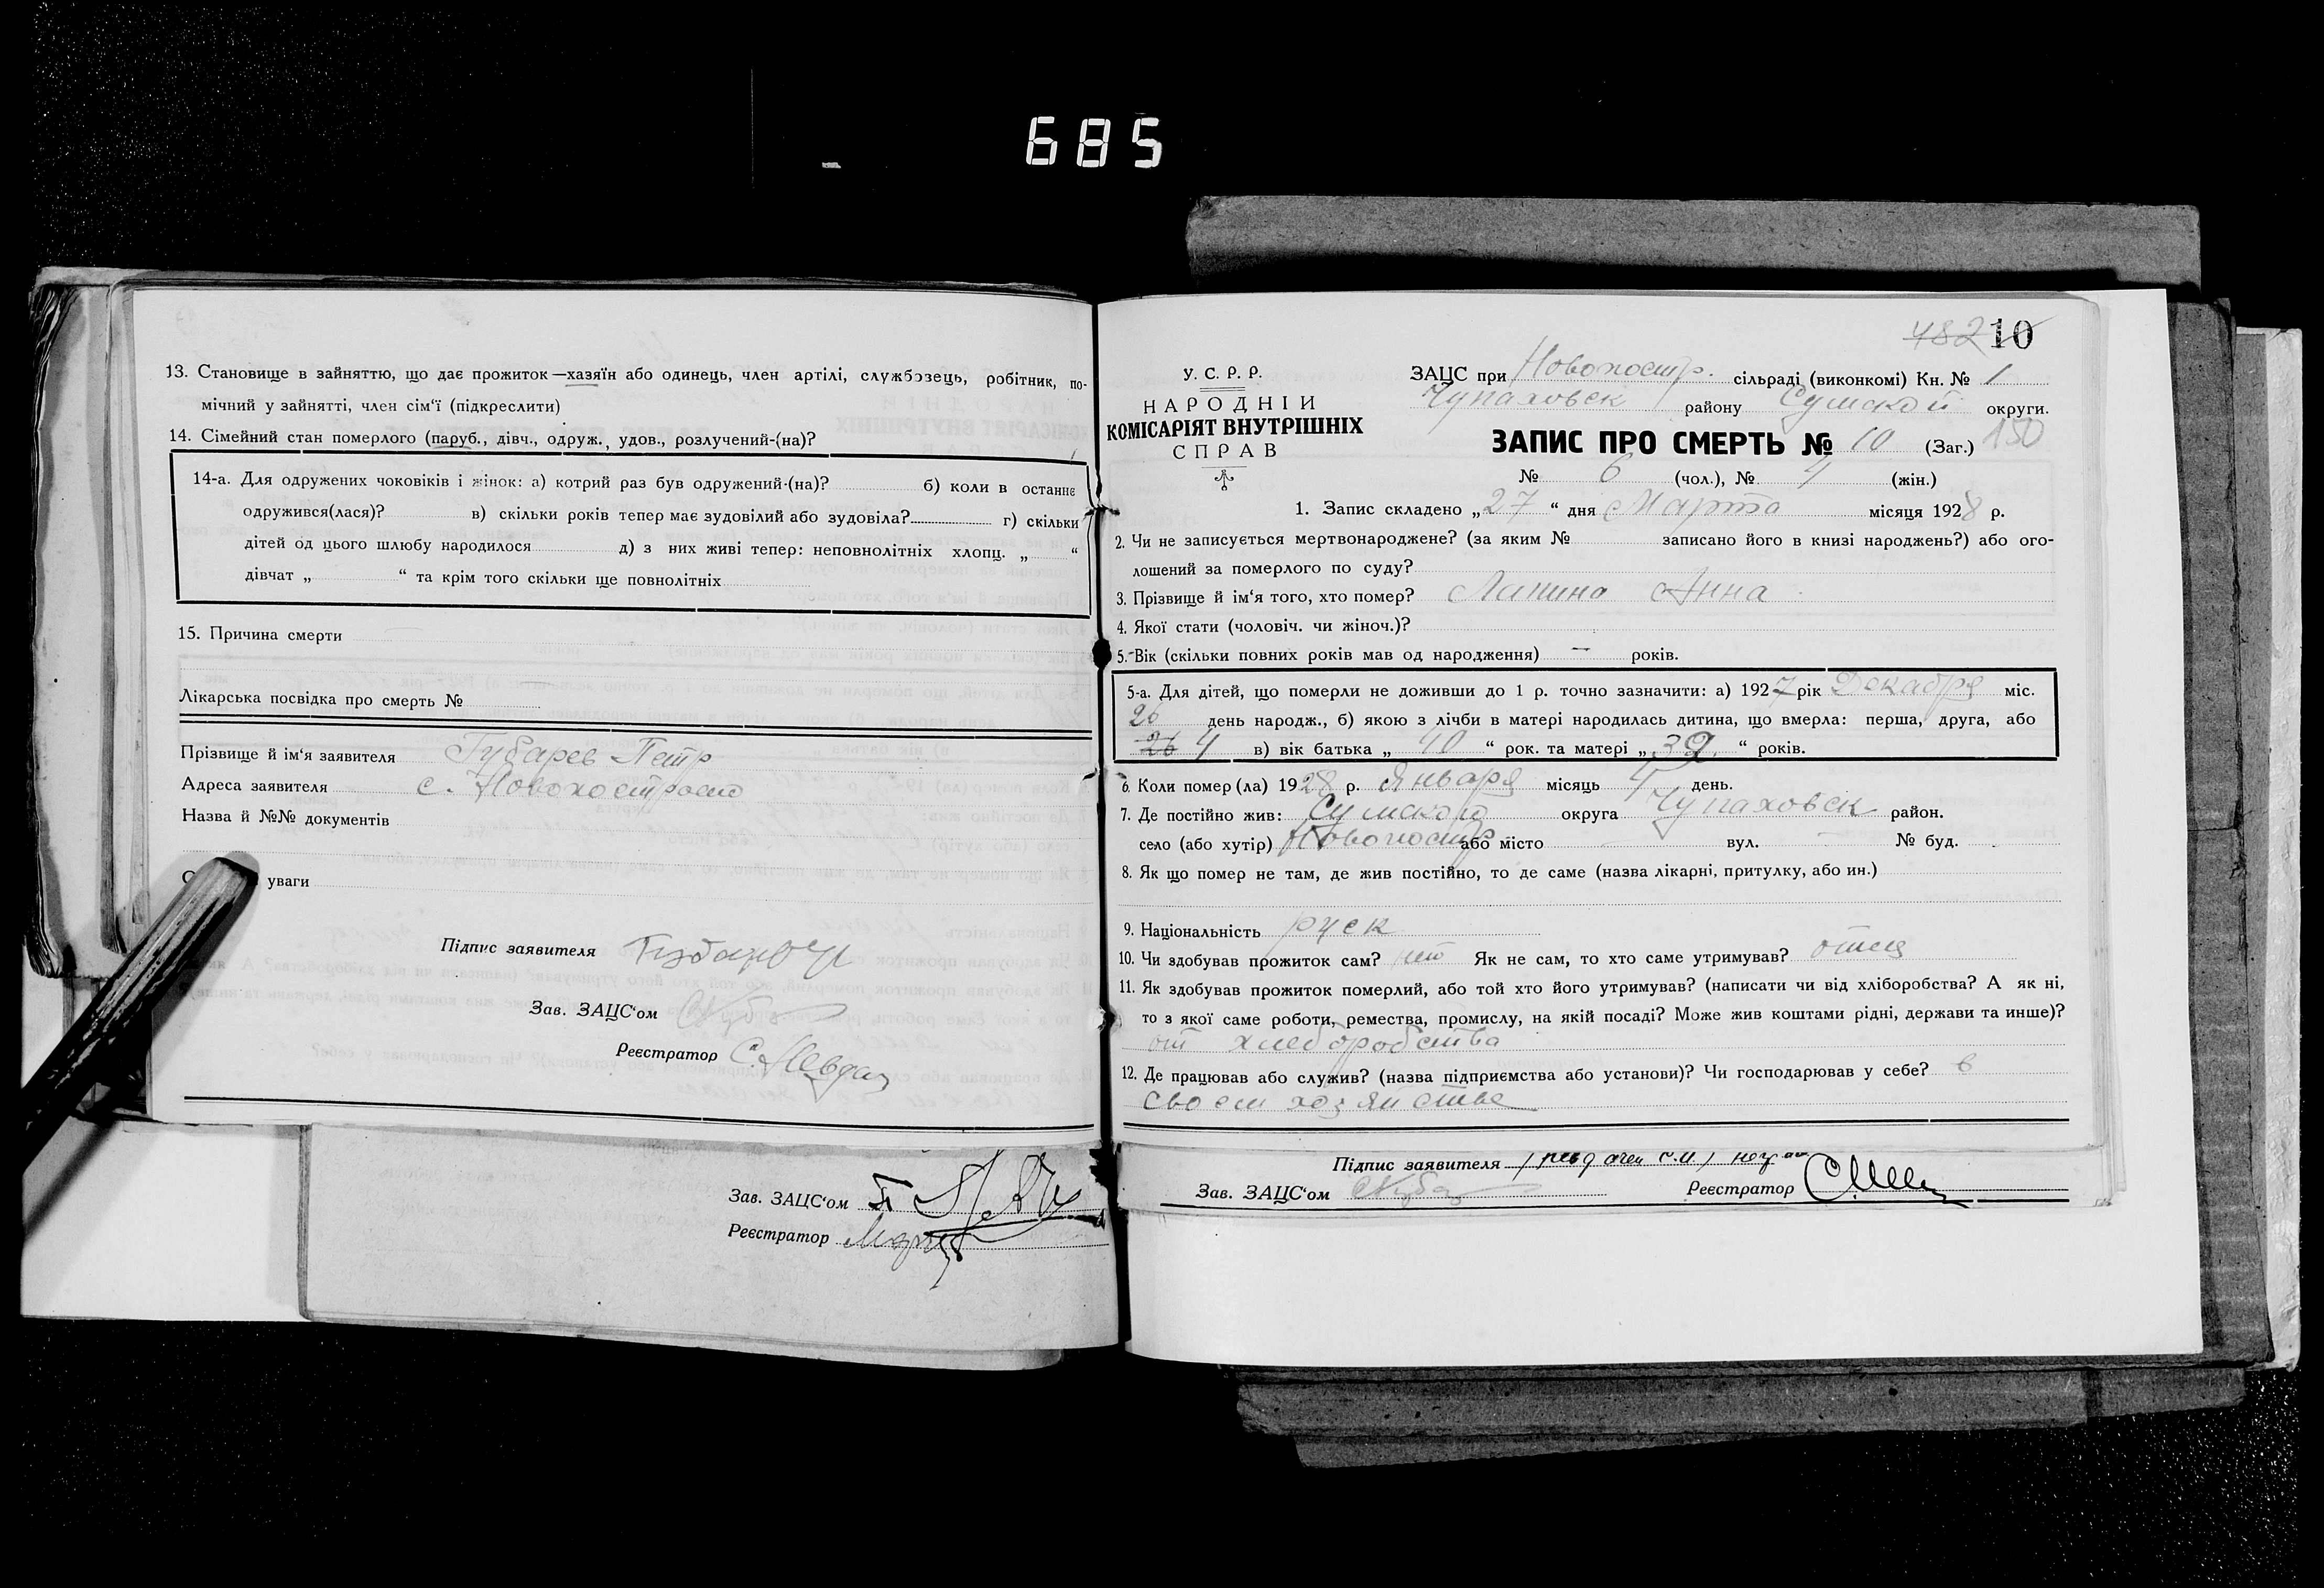 685
13. Становище в зайняттю, що дає прожиток—хазяїн або одинець, член артілі, службовець, робітник, по-
мічний у зайнятті, член сім'ї (підкреслити)
14. Сімейний стан померлого (паруб., дівч., одруж., удов., розлучений-(на)?
14-а. Для одружених чоковіків і жінок: а) котрий раз був одружений-(на)? б) коли в останнє
одружився(лася)? в) скільки років тепер має зудовілий або зудовіла? г) скільки
дітей од цього шлюбу народилося д) з них живі тепер: неповнолітніх хлопц. „ “
дівчат „ “ та крім того скільки ще повнолітніх
15. Причина смерти
Лікарська посвідка про смерть №
Прізвище й ім'я заявителя Губарев Петр
Адреса заявителя с.
Назва й №№ документів
уваги
Підпис заявителя
Зав. ЗАЦС'ом
Реєстратор
Зав. ЗАЦС'ом
Реєстратор
482 10
У. С. Р. Р.
НАРОДНІЙ
КОМІСАРІЯТ ВНУТРІШНІХ
СПРАВ
ЗАЦС при сільраді (виконкомі) Кн. № 1
Чупаховск району Сумской округи.
ЗАПИС ПРО СМЕРТЬ № 10 (Заг.) 150
№ 6 (чол.), № 4 (жін.)
1. Запис складено „27“ дня Марта місяця 1928 р.
2. Чи не записується мертвонароджене? (за яким № записано його в книзі народжень?) або ого-
лошений за померлого по суду?
3. Прізвище й ім'я того, хто помер? Лапина Анна
4. Якої стати (чоловіч. чи жіноч.)?
5. Вік (скільки повних років мав од народження) — років.
5-а. Для дітей, що померли не доживши до 1 р. точно зазначити: а) 1927 рік Декабря міс.
26 день народж., б) якою з лічби в матері народилась дитина, що вмерла: перша, друга, або
26 4 в) вік батька „ 40 “ рок. та матері „ 39 “ років.
6. Коли помер (ла) 1928 р. Января місяць 4 день.
7. Де постійно жив: Сумской округа Чупаховск район.
село (або хутір) або місто вул. № буд.
8. Як що помер не там, де жив постійно, то де саме (назва лікарні, притулку, або ин.)
9. Національність руск
10. Чи здобував прожиток сам? нет Як не сам, то хто саме утримував? отец
11. Як здобував прожиток померлий, або той хто його утримував? (написати чи від хліборобства? А як ні,
то з якої саме роботи, ремества, промислу, на якій посаді? Може жив коштами рідні, держави та инше)?
от хлеборобства
12. Де працював або служив? (назва підприємства або установи)? Чи господарював у себе? в
своем хозяйстве
Підпис заявителя
Зав. ЗАЦС'ом
Реєстратор